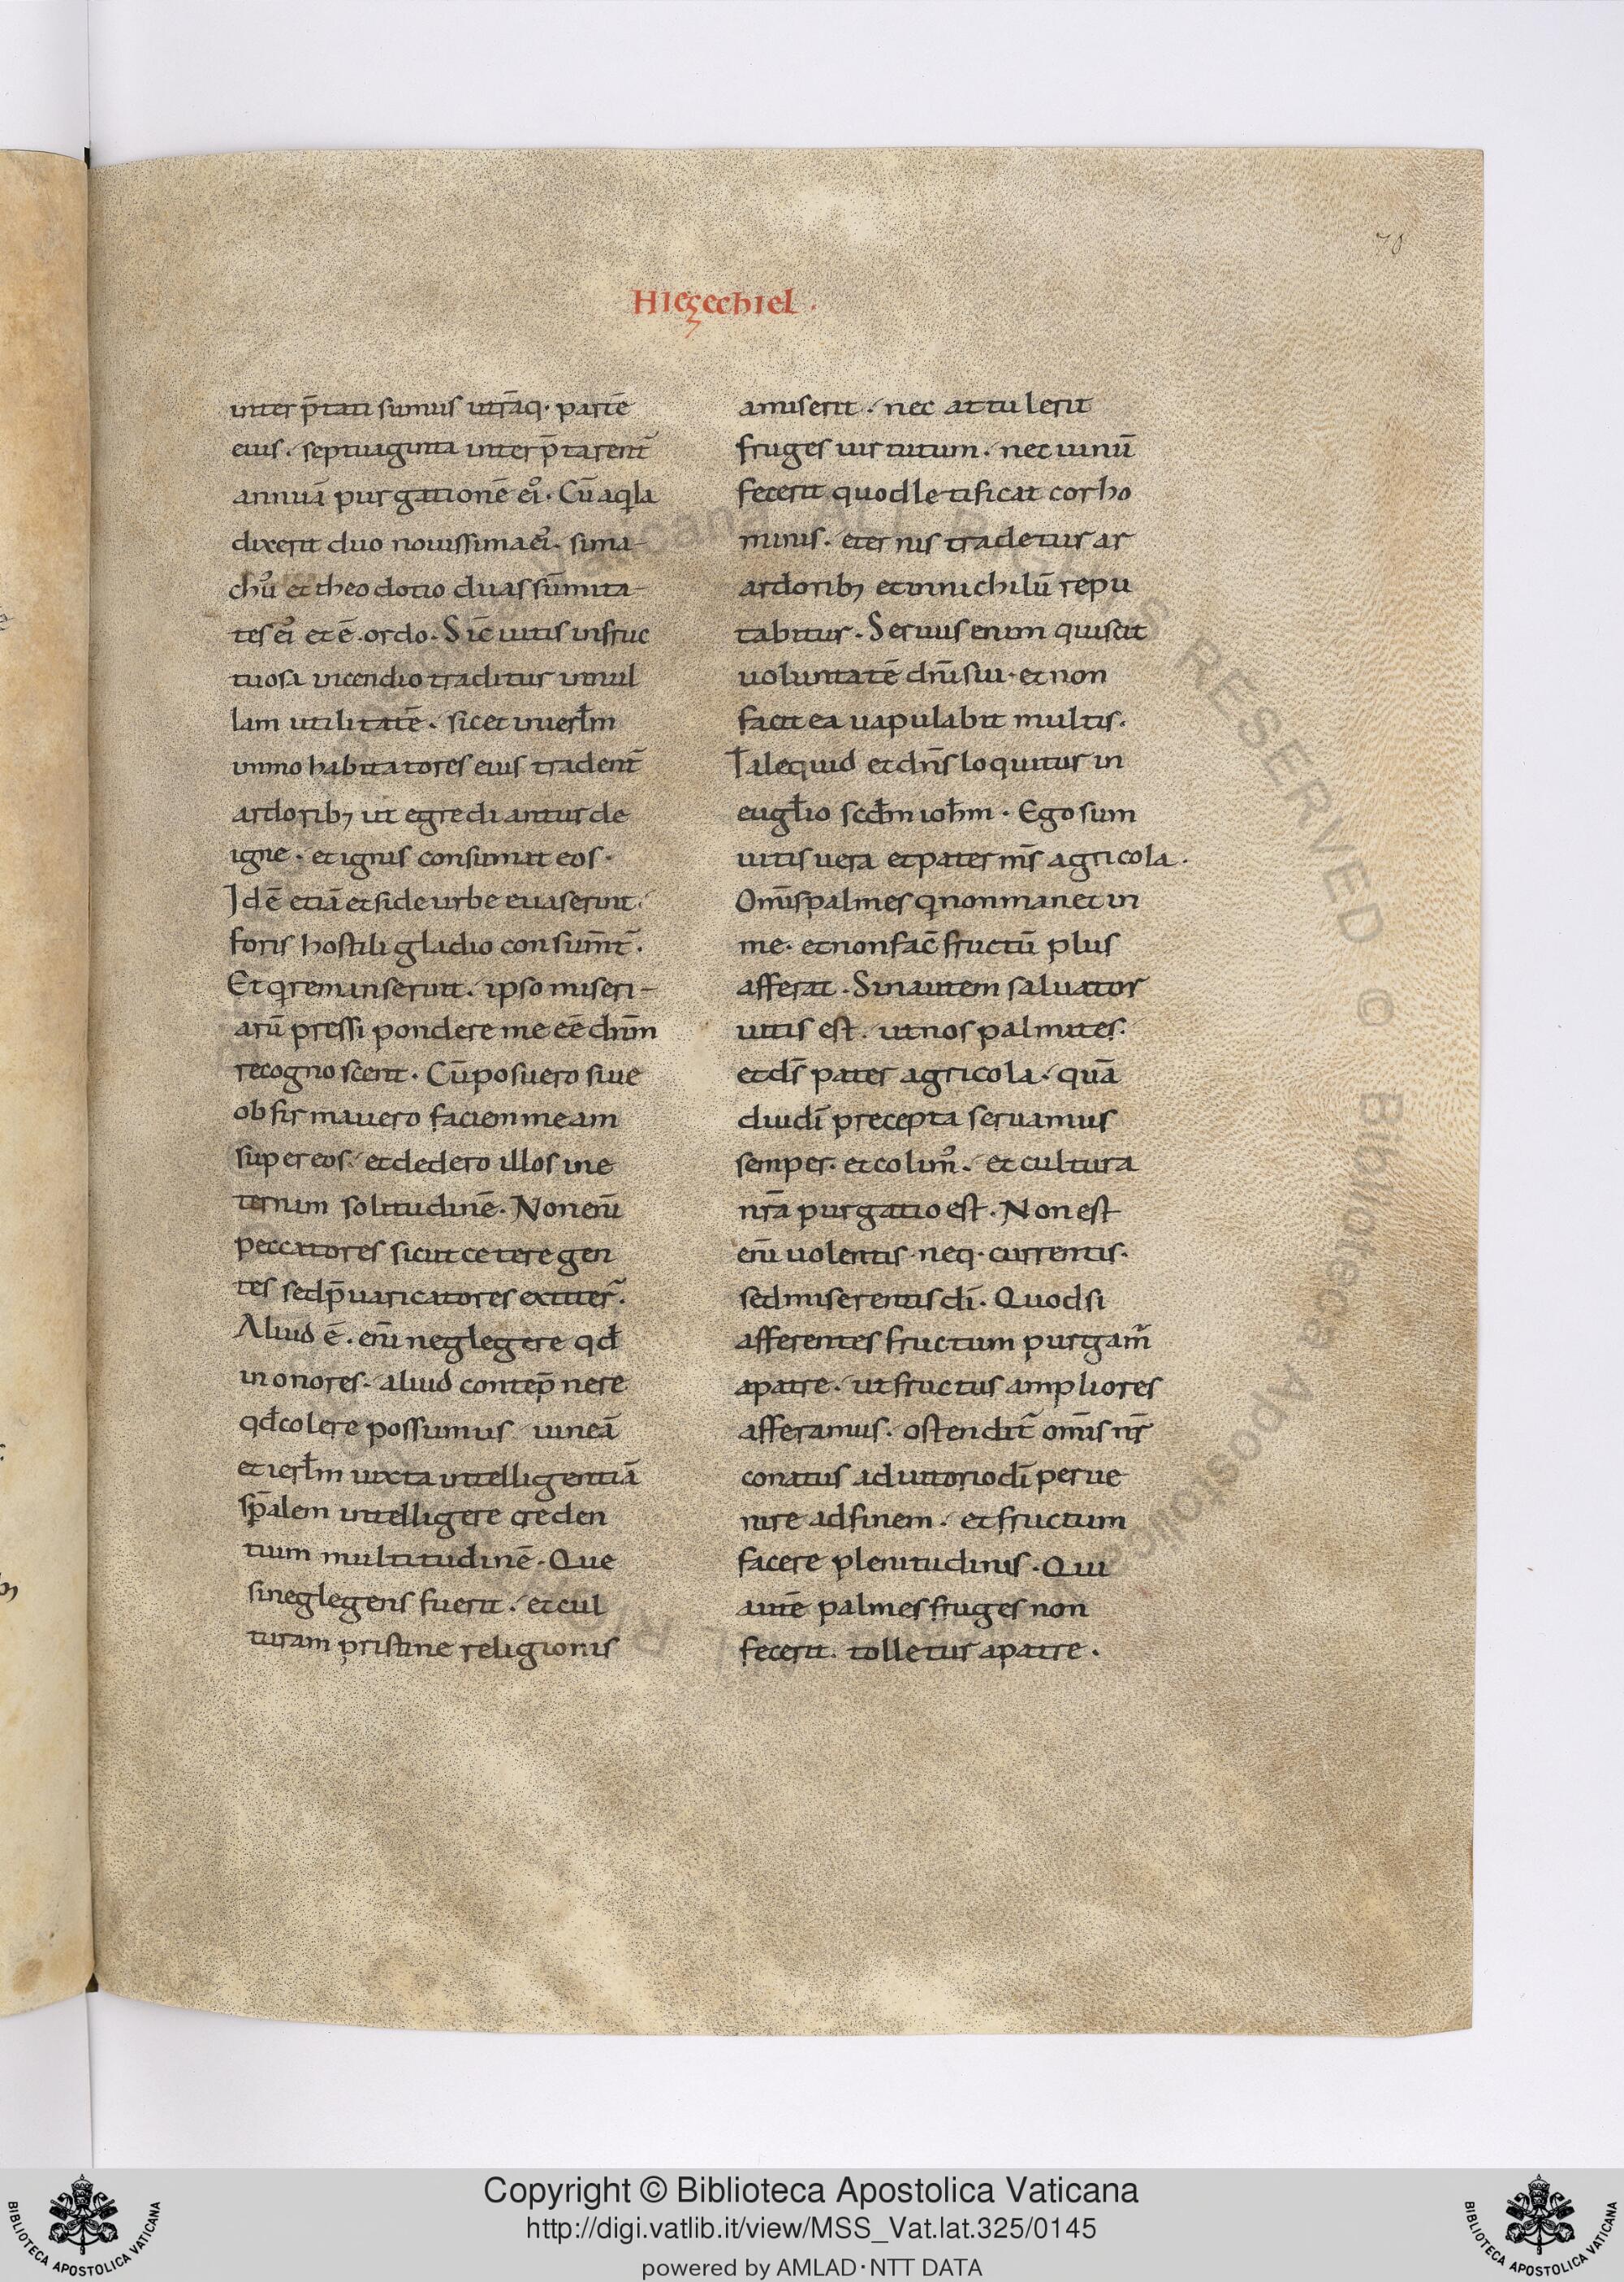 70
Hiezechiel.
inter p̄tati sumus utrāq· partē
eius. septuaginta inter p̄tarent̄
annuā purgationē ei᾿. Cū aq̇la
dixerit duo nouissima ei᾿. sima-
chu᾿ et theodotio duas sūmita-
tes ei᾿ et ē. ordo. Sic̄ uitis infruc
tuosa incendio traditur in nul
lam utilitatē. sic et inierl̄m
immo habitatores eius tradent̄
ardorib; ut egrediantur de
igne. et ignis consumat eos.
Idē etiā et si de urbe euaserint.
foris hostili gladio consum̄t̄.
Et q̇ remanserint. ipso miseri-
arū pressi pondere me eē dn̄m
recognoscent. Cū posuero siue
obfirmauero faciem meam
super eos. et dedero illos ine
ternam solitudinē. Non eni̅
peccatores sicut cetere gen
tes sed p̄uaricatores extiter̄.
Aliud ē. eni̅ neglegere qđ
inonores. aliud contep̄nere
qđ colere possumus uineā
et ierl̄m iuxta intelligentiā
sp̄alem intelligere creden
tium multitudinē. Que
si neglegens fuerit. et cul
turam pristine religionis
amiserit. nec attulerit
fruges uirtutum. nec uinū
fecerit quod letificat cor ho
minis. eternis tradetur ar
ardorib; et in nichilū repu
tabitur. Seruus enim qui scit
uoluntatē dn̄i sui. et non
facit ea uapulabit multis.
Tale quid et dn̄s loquitur in
eugl̄io scđm ioh̄m. Ego sum
uitis uera et pater m̄s agricola.
Omīs palmes q̇ non manet in
me. et non fac̄ fructū plus
afferat. Sin autem saluator
uitis est. ut nos palmites.
et ds̄ pater agricola. quā
diu dī precepta seruamus
semper. et colim᾿. et cultura
nr̄a purgatio est. Non est
eni̅ uolentis neq· currentis.
sed miserentis dī. Quod si
afferentes fructum purgam᾿
a patre. ut fructus ampliores
afferamus. ostendit̄ omīs nr̄
conatus adiutorio dī perue
nire ad finem. et fructum
facere plenitudinis. Qui
autē palmes fruges non
fecerit. tolletur a patre.
Copyright © Biblioteca Apostolica Vaticana
http://digi.vatlib.it/view/MSS_Vat.lat.325/0145
powered by AMLAD·NTT DATA
BIBLIOTECA APOSTOLICA VATICANA
BIBLIOTECA APOSTOLICA VATICANA